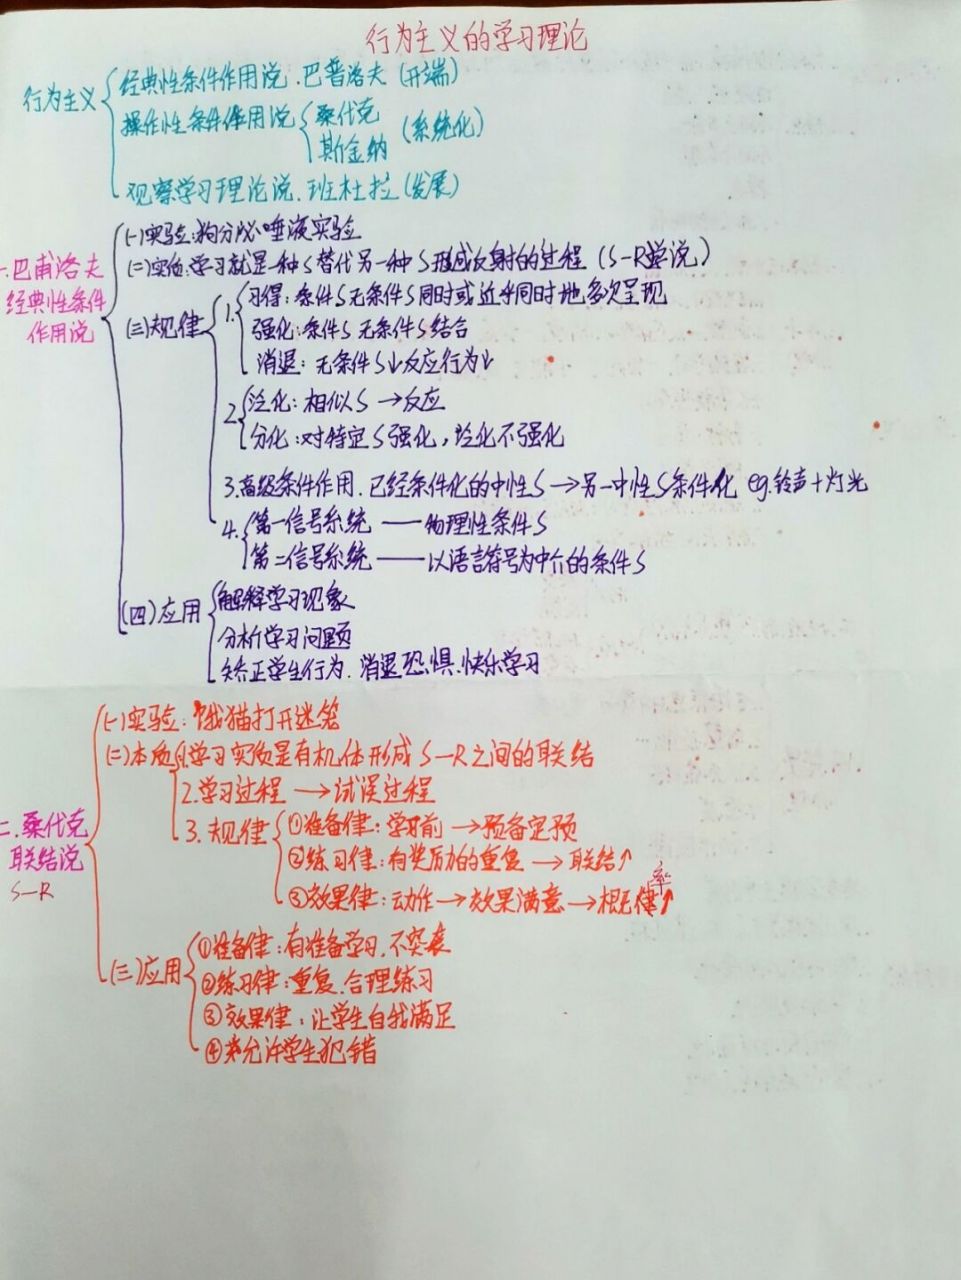 行为主义的学习理论
行为主义
经典性条件作用说.巴普洛夫(开端)
操作性条件作用说
桑代克
斯金纳
(系统化)
观察学习理论说.班杜拉(发展)
一.巴甫洛夫
经典性条件
作用说
(一)实验:狗分泌唾液实验
(二)实质:学习就是一种S替代另一种S形成反射的过程(S-R学说)
(三)规律
1.
习得:条件S无条件S同时或近乎同时地多次呈现
强化:条件S 无条件S结合
消退:无条件S↓反应行为↓
2.
泛化:相似S→反应
分化:对特定S强化,泛化不强化
3.高级条件作用.已经条件化的中性S→另一中性S条件化 eg.铃声+灯光
4.
第一信号系统——物理性条件S
第二信号系统——以语言符号为中介的条件S
(四)应用
解释学习现象
分析学习问题
矫正学生行为.消退恐惧.快乐学习
二.桑代克
联结说
S-R
(一)实验:饿猫打开迷笼
(二)本质
1.学习实质是有机体形成S-R之间的联结
2.学习过程→试误过程
3.规律
①准备律:学习前→预备定预
②练习律:有奖励的重复→联结↑
③效果律:动作→效果满意→概率↑
(三)应用
①准备律:有准备学习,不突袭
②练习律:重复.合理练习
③效果律:让学生自我满足
④允许学生犯错